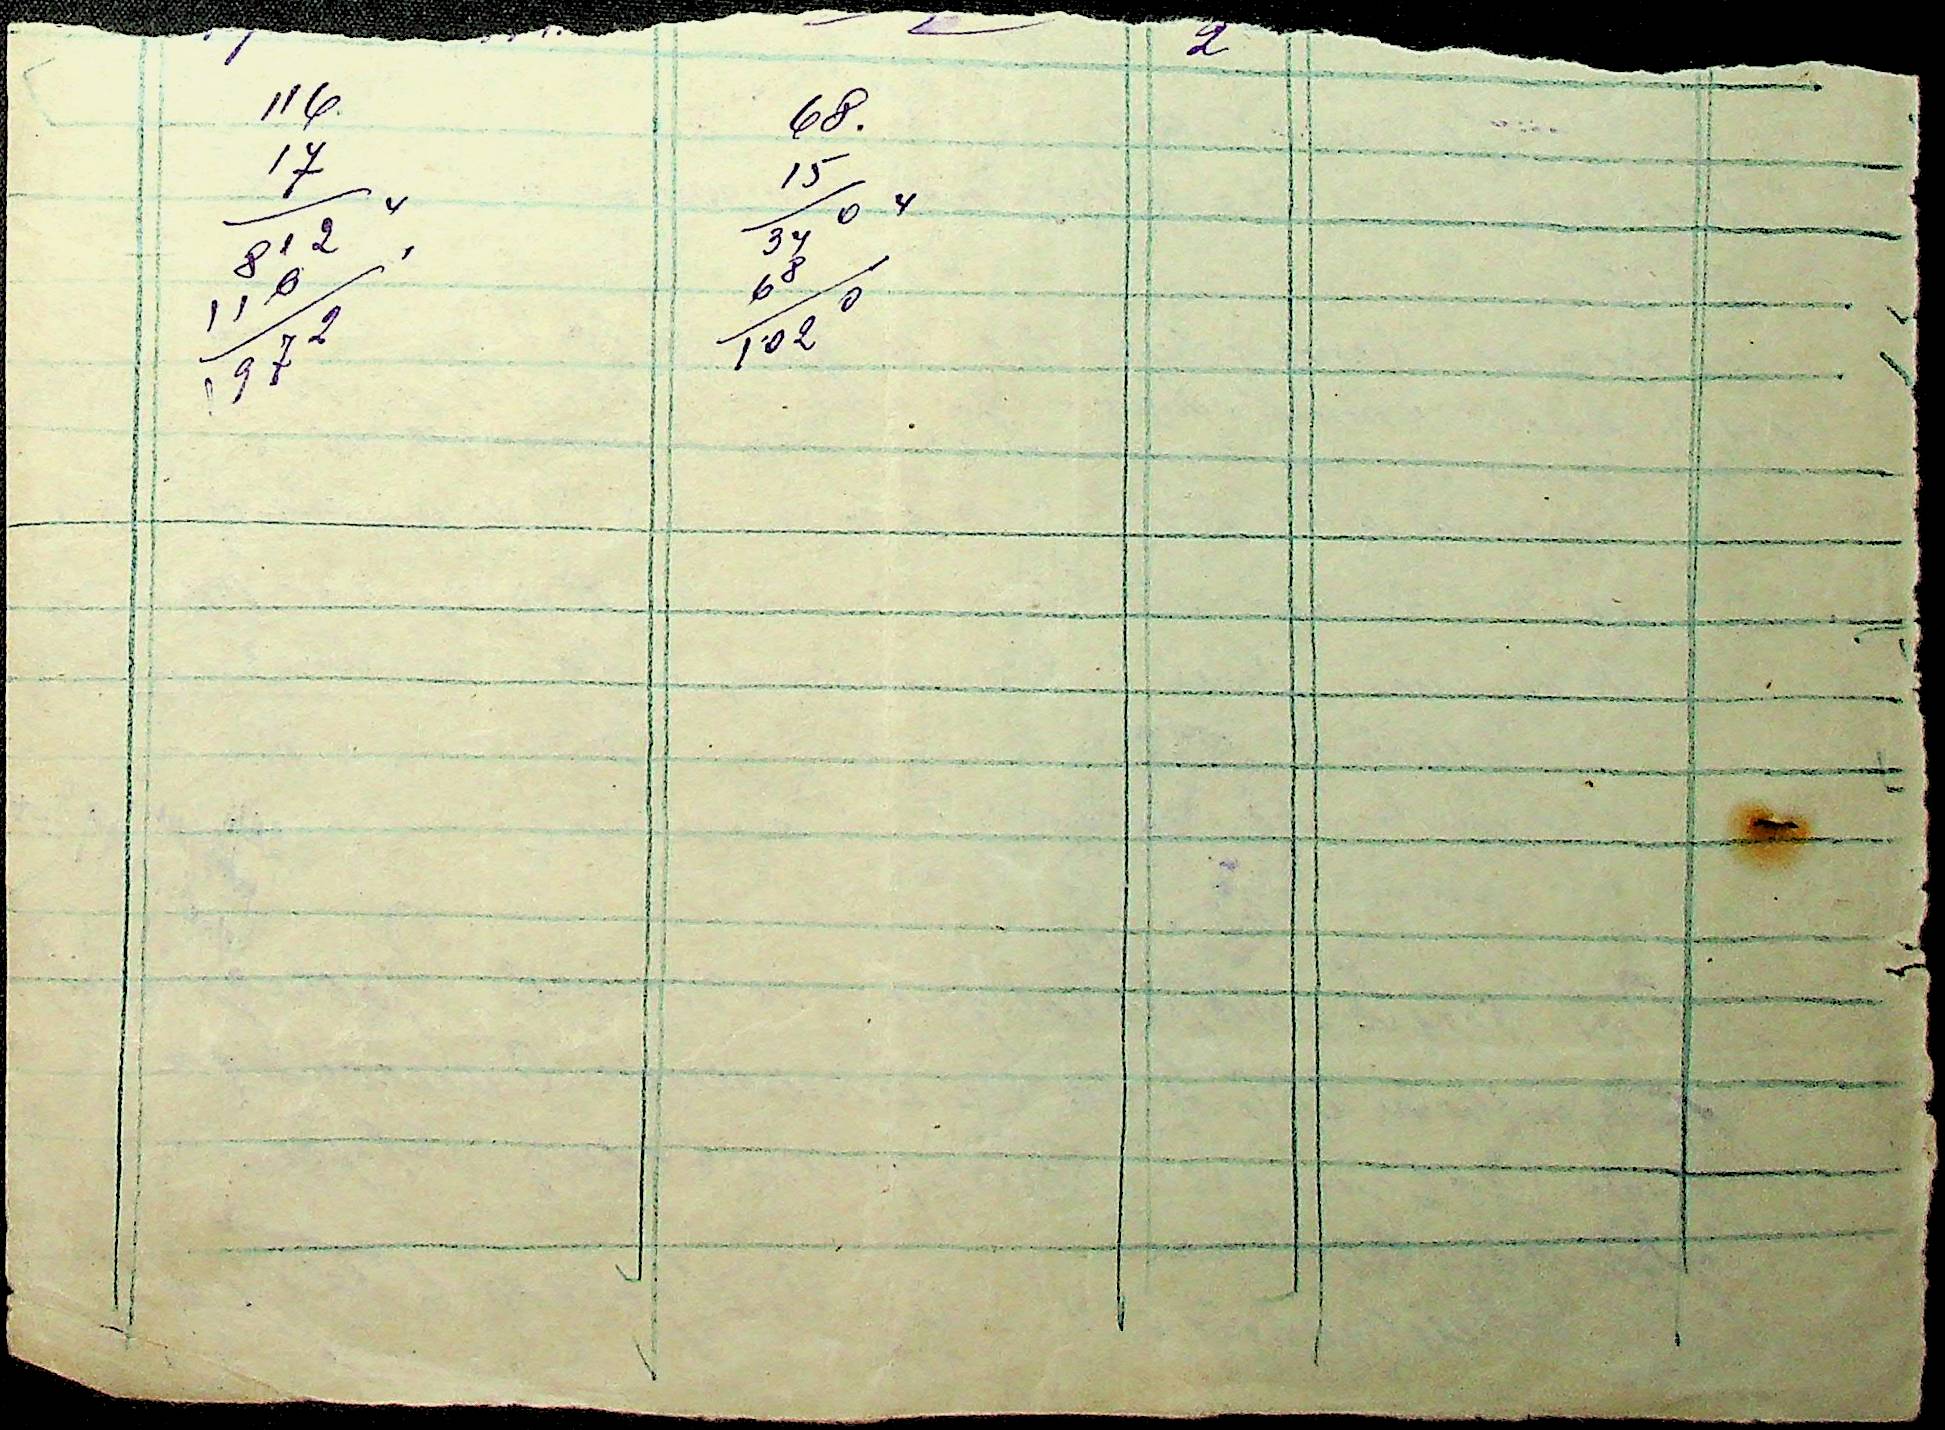 2
116
17
812 4
116
1972
68.
15
340 4
68
1020